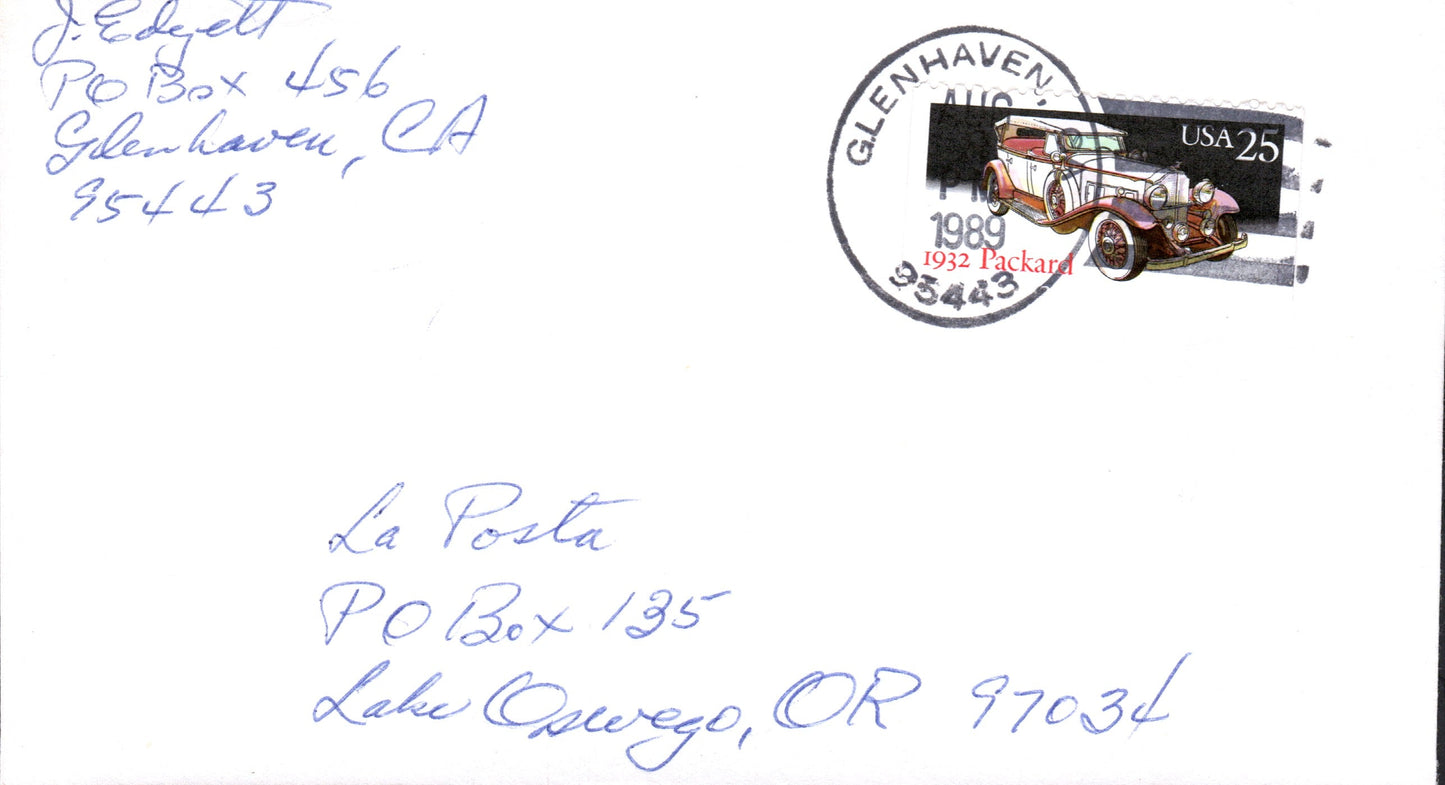 J. Edgett
PO Box 456
Glenhaven, CA
95443
GLENHAVEN,
AUG
PM
1989
95443
USA 25
1932 Packard
La Posta
PO Box 135
Lake Oswego, OR 97034